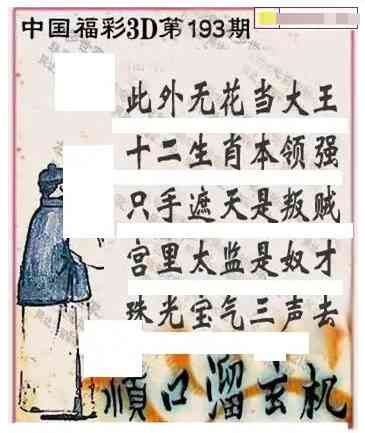 中国福彩3D第193期
此外无花当大王
十二生肖本领强
只手遮天是叛贼
宫里太监是奴才
珠光宝气三声去
顺口溜玄机